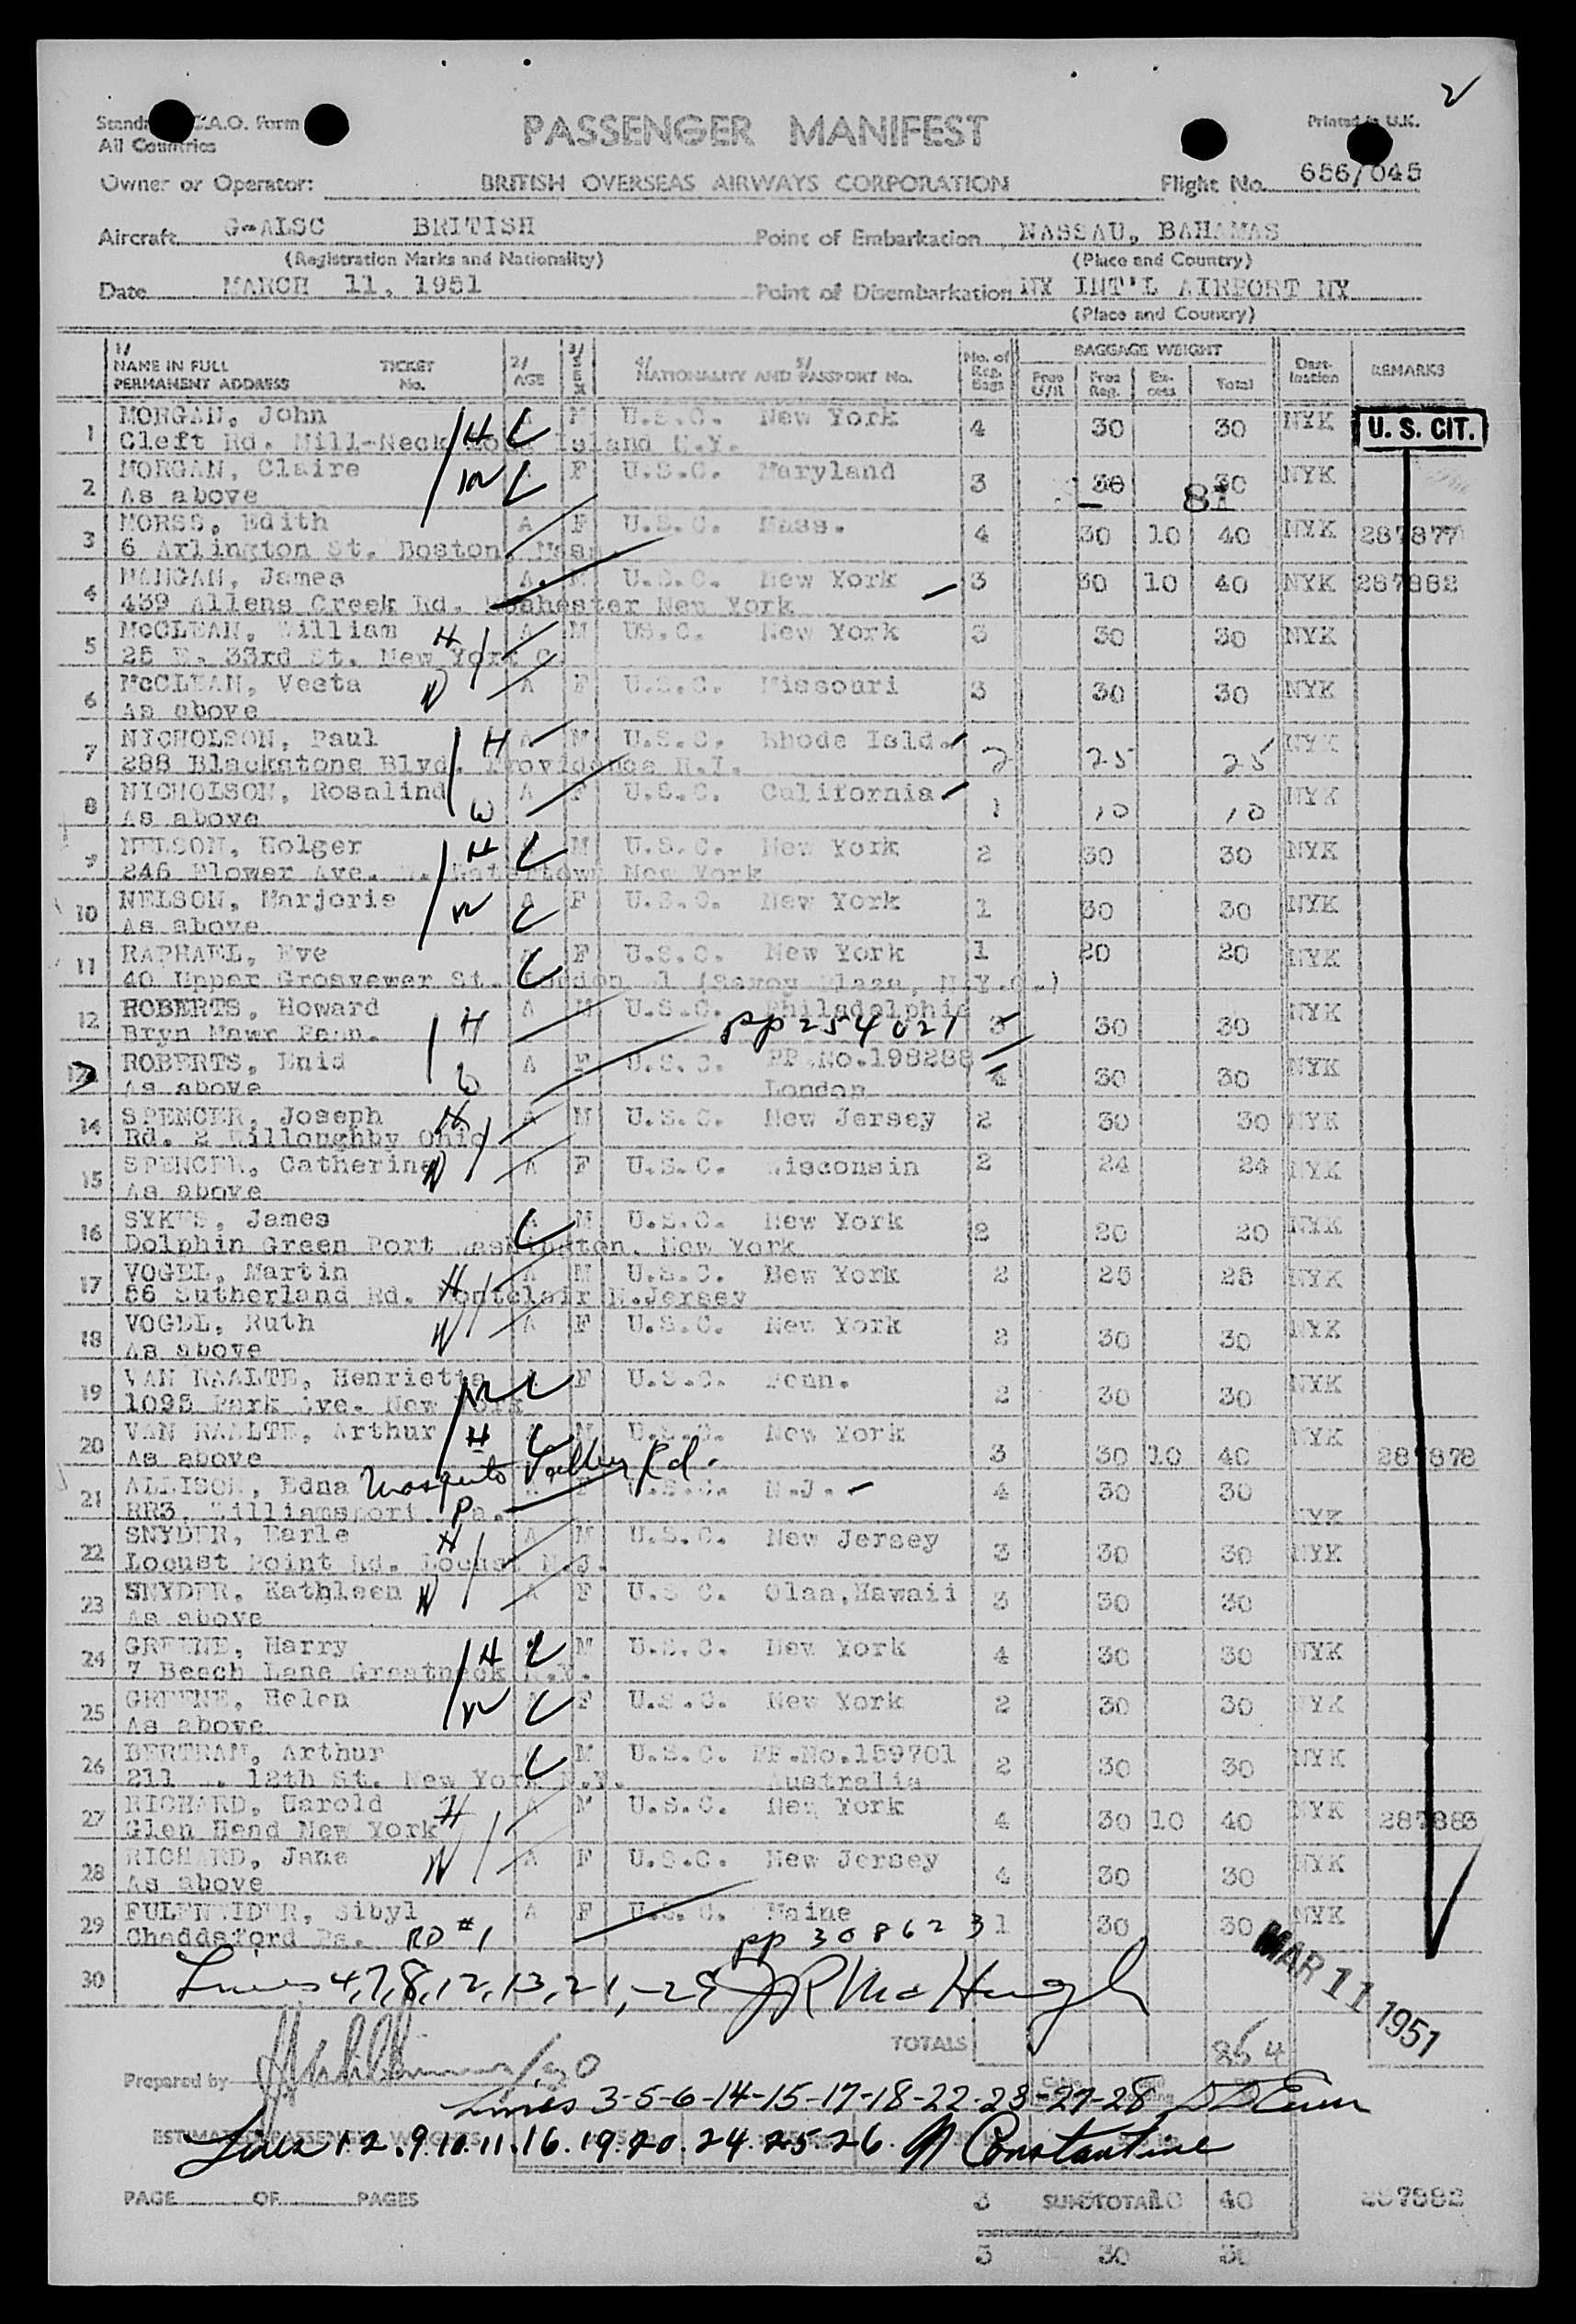 2
Standa C.A.O. Form
All Countries
PASSENGER MANIFEST
Printed in U.K.
Owner or Operator: BRITISH OVERSEAS AIRWAYS CORPORATION Flight No. 656/045
Aircraft G-ALSC BRITISH Point of Embarkation NASSAU, BAHAMAS
(Registration Marks and Nationality) (Place and Country)
Date MARCH 11, 1951 Point of Disembarkation NY INT'L AIRPORT NY
(Place and Country)
1/ NAME IN FULL PERMANENT ADDRESS TICKET No. 2/ AGE 3/ SEX 4/ 5/ NATIONALITY AND PASSPORT No. No. of Reg. Bags BAGGAGE WEIGHT Free U/R Free Reg. Ex-cess Total Dest-ination REMARKS
1 MORGAN, John H M U.S.C. New York 4 30 30 NYK U. S. CIT.
Cleft Rd. Mill-Neck Long Island N.Y.
2 MORGAN, Claire W A F U.S.C. Maryland 3 30 30 NYK
As above 81
3 MORSS, Edith A F U.S.C. Mass. 4 30 10 40 NYK 287877
6 Arlington St. Boston, Mass.
4 MANGAN, James A. M U.S.C. New York 3 30 10 40 NYK 287882
439 Allens Creek Rd. Rochester New York
5 McCLEAN, William H A M US.C. New York 3 30 30 NYK
25 E. 33rd St. New York C.
6 McCLEAN, Veeta W A F U.S.C. Missouri 3 30 30 NYK
As above
7 NICHOLSON, Paul H A M U.S.C. Rhode Isld. 2 25 25 NYK
288 Blackstone Blvd. Providence R.I.
8 NICHOLSON, Rosalind W A F U.S.C. California 1 10 10 NYK
As above
9 NELSON, Holger H M U.S.C. New York 2 30 30 NYK
246 Flower Ave. W. Watertown New York
10 NELSON, Marjorie W A F U.S.C. New York 1 30 30 NYK
As above
11 RAPHAEL, Eve A F U.S.C. New York 1 20 20 NYK
40 Upper Grosvewer St. London W1 (Savoy Plaza, N.Y.C.)
12 ROBERTS, Howard H A M U.S.C. Philadelphia 3 30 30 NYK
Bryn Mawr Penn. pp 254021
13 ROBERTS, Enid W A F U.S.C. PP.No.198288 4 30 30 NYK
As above London
14 SPENCER, Joseph H A M U.S.C. New Jersey 2 30 30 NYK
Rd. 2 Willoughby Ohio
15 SPENCER, Catherine W A F U.S.C. Wisconsin 2 24 24 NYK
As above
16 SYKES, James A M U.S.C. New York 2 20 20 NYK
Dolphin Green Port Washington, New York
17 VOGEL, Martin H A M U.S.C. New York 2 25 25 NYK
56 Sutherland Rd. Montclair N.Jersey
18 VOGEL, Ruth W A F U.S.C. New York 2 30 30 NYK
As above
19 VAN RAALTE, Henrietta W F U.S.C. Penn. 2 30 30 NYK
1095 Park Ave. New York
20 VAN RAALTE, Arthur H M U.S.C. New York 3 30 10 40 NYK 287878
As above Mosquito Valley Rd.
21 ALLISON, Edna A F U.S.C. N.J. 4 30 30
RR3, Williamsport. Pa. NYK
22 SNYDER, Earle H A M U.S.C. New Jersey 3 30 30 NYK
Locust Point Rd. Locust N.J.
23 SNYDER, Kathleen W A F U.S.C. Olaa,Hawaii 3 30 30
As above
24 GREENE, Harry H M U.S.C. New York 4 30 30 NYK
7 Beach Lane Greatneck N.Y.
25 GREENE, Helen W A F U.S.C. New York 2 30 30 NYK
As above
26 BERTRAM, Arthur M U.S.C. PP.No.159701 2 30 30 NYK
211 W. 12th St. New York N.Y. Australia
27 RICHARD, Harold H A M U.S.C. New York 4 30 10 40 NYK 287883
Glen Head New York
28 RICHARD, Jane W A F U.S.C. New Jersey 4 30 30 NYK
As above
29 FULENWIDER, Sibyl A F U.S.C. Maine 1 30 30 NYK
Chaddsford Pa. RD #1 pp 308623
30 Lines 4,7,8,12,13,21,-29 JR McHugh
MAR 11 1951
TOTALS 864
Prepared by
Lines 3-5-6-14-15-17-18-22-23-27-28
Lines 1.2.9.10.11.16.19.20.24.25.26. Constantine
PAGE OF PAGES 3 SUB-TOTAL 40 287882
3 30 30